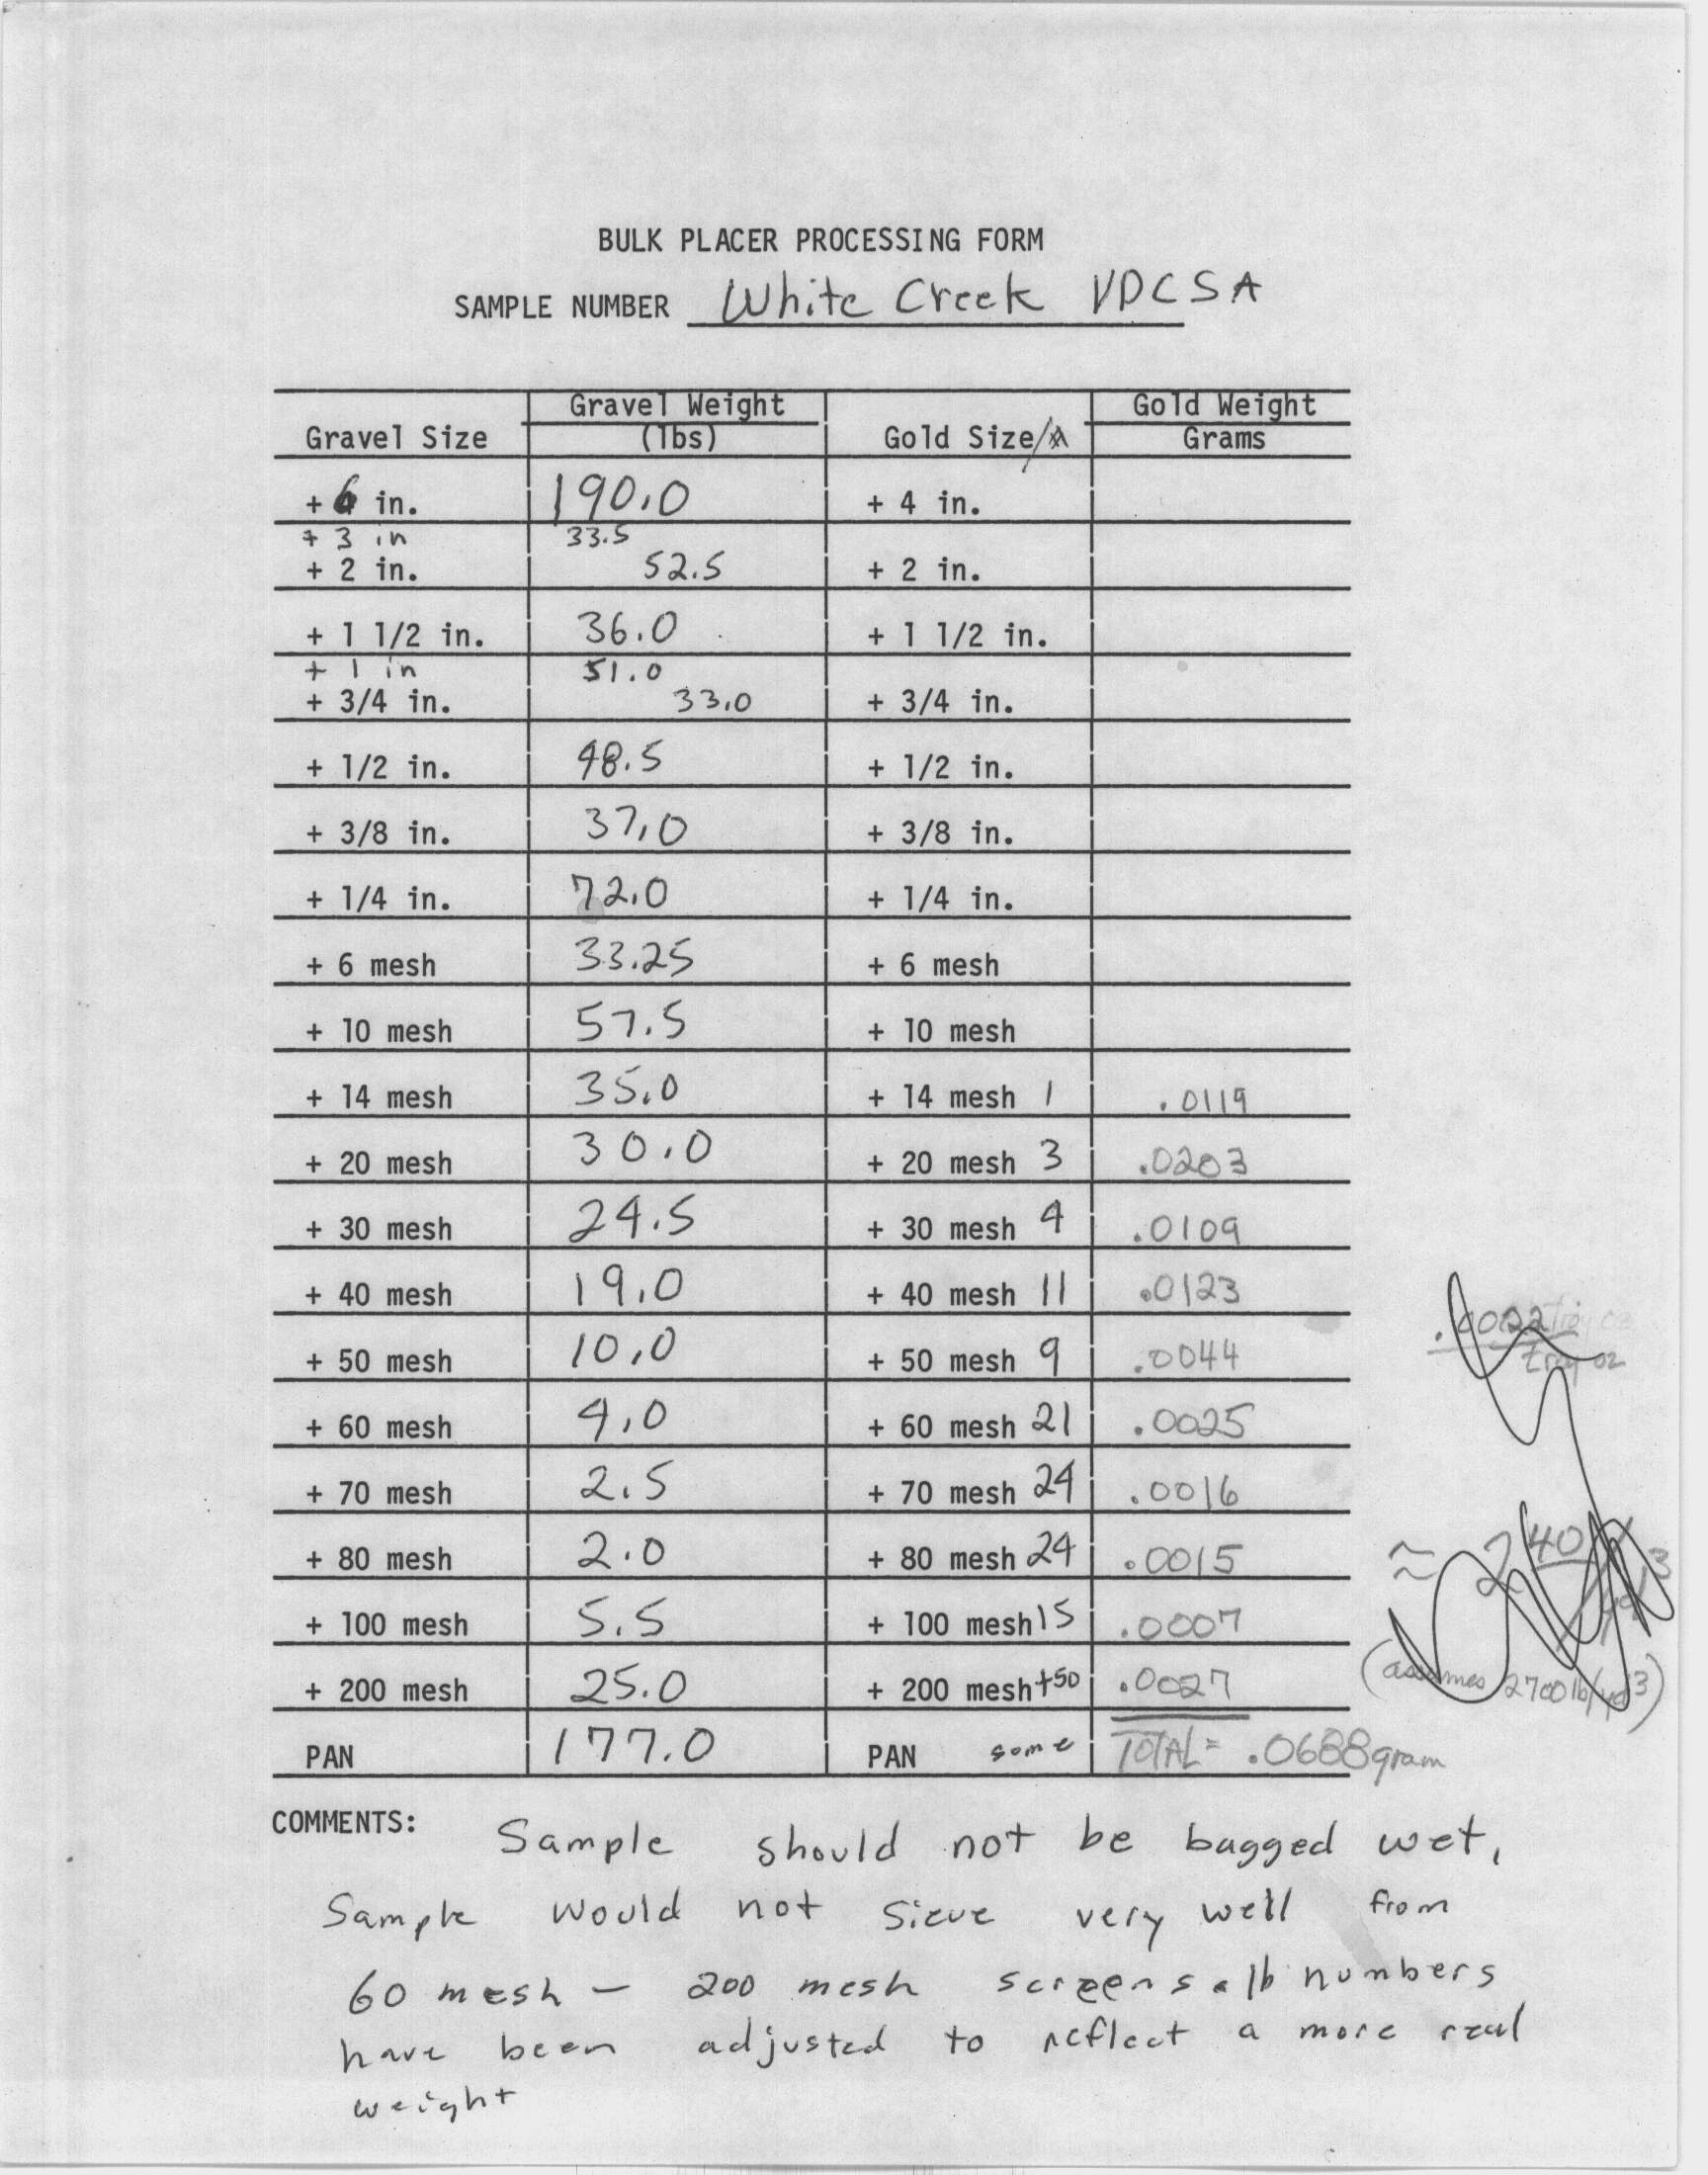 BULK PLACER PROCESSING FORM
SAMPLE NUMBER White Creek VDCSA
Gravel Size Gravel Weight (lbs) Gold Size/# Gold Weight Grams
+ 6 in. 190.0 + 4 in.
+ 3 in 33.5
+ 2 in. 52.5 + 2 in.
+ 1 1/2 in. 36.0 + 1 1/2 in.
+ 1 in 51.0
+ 3/4 in. 33.0 + 3/4 in.
+ 1/2 in. 48.5 + 1/2 in.
+ 3/8 in. 37.0 + 3/8 in.
+ 1/4 in. 72.0 + 1/4 in.
+ 6 mesh 33.25 + 6 mesh
+ 10 mesh 57.5 + 10 mesh
+ 14 mesh 35.0 + 14 mesh 1 .0119
+ 20 mesh 30.0 + 20 mesh 3 .0203
+ 30 mesh 24.5 + 30 mesh 4 .0109
+ 40 mesh 19.0 + 40 mesh 11 .0123
.0022
troy oz
+ 50 mesh 10.0 + 50 mesh 9 .0044
+ 60 mesh 4.0 + 60 mesh 21 .0025
+ 70 mesh 2.5 + 70 mesh 24 .0016
+ 80 mesh 2.0 + 80 mesh 24 .0015
+ 100 mesh 5.5 + 100 mesh 15 .0007
+ 200 mesh 25.0 + 200 mesh +50 .0027
(assumes 2700 lb/yd3)
PAN 177.0 PAN some TOTAL = .0688 gram
COMMENTS: Sample should not be bagged wet,
Sample would not sieve very well from
60 mesh — 200 mesh screens. lb numbers
have been adjusted to reflect a more real
weight